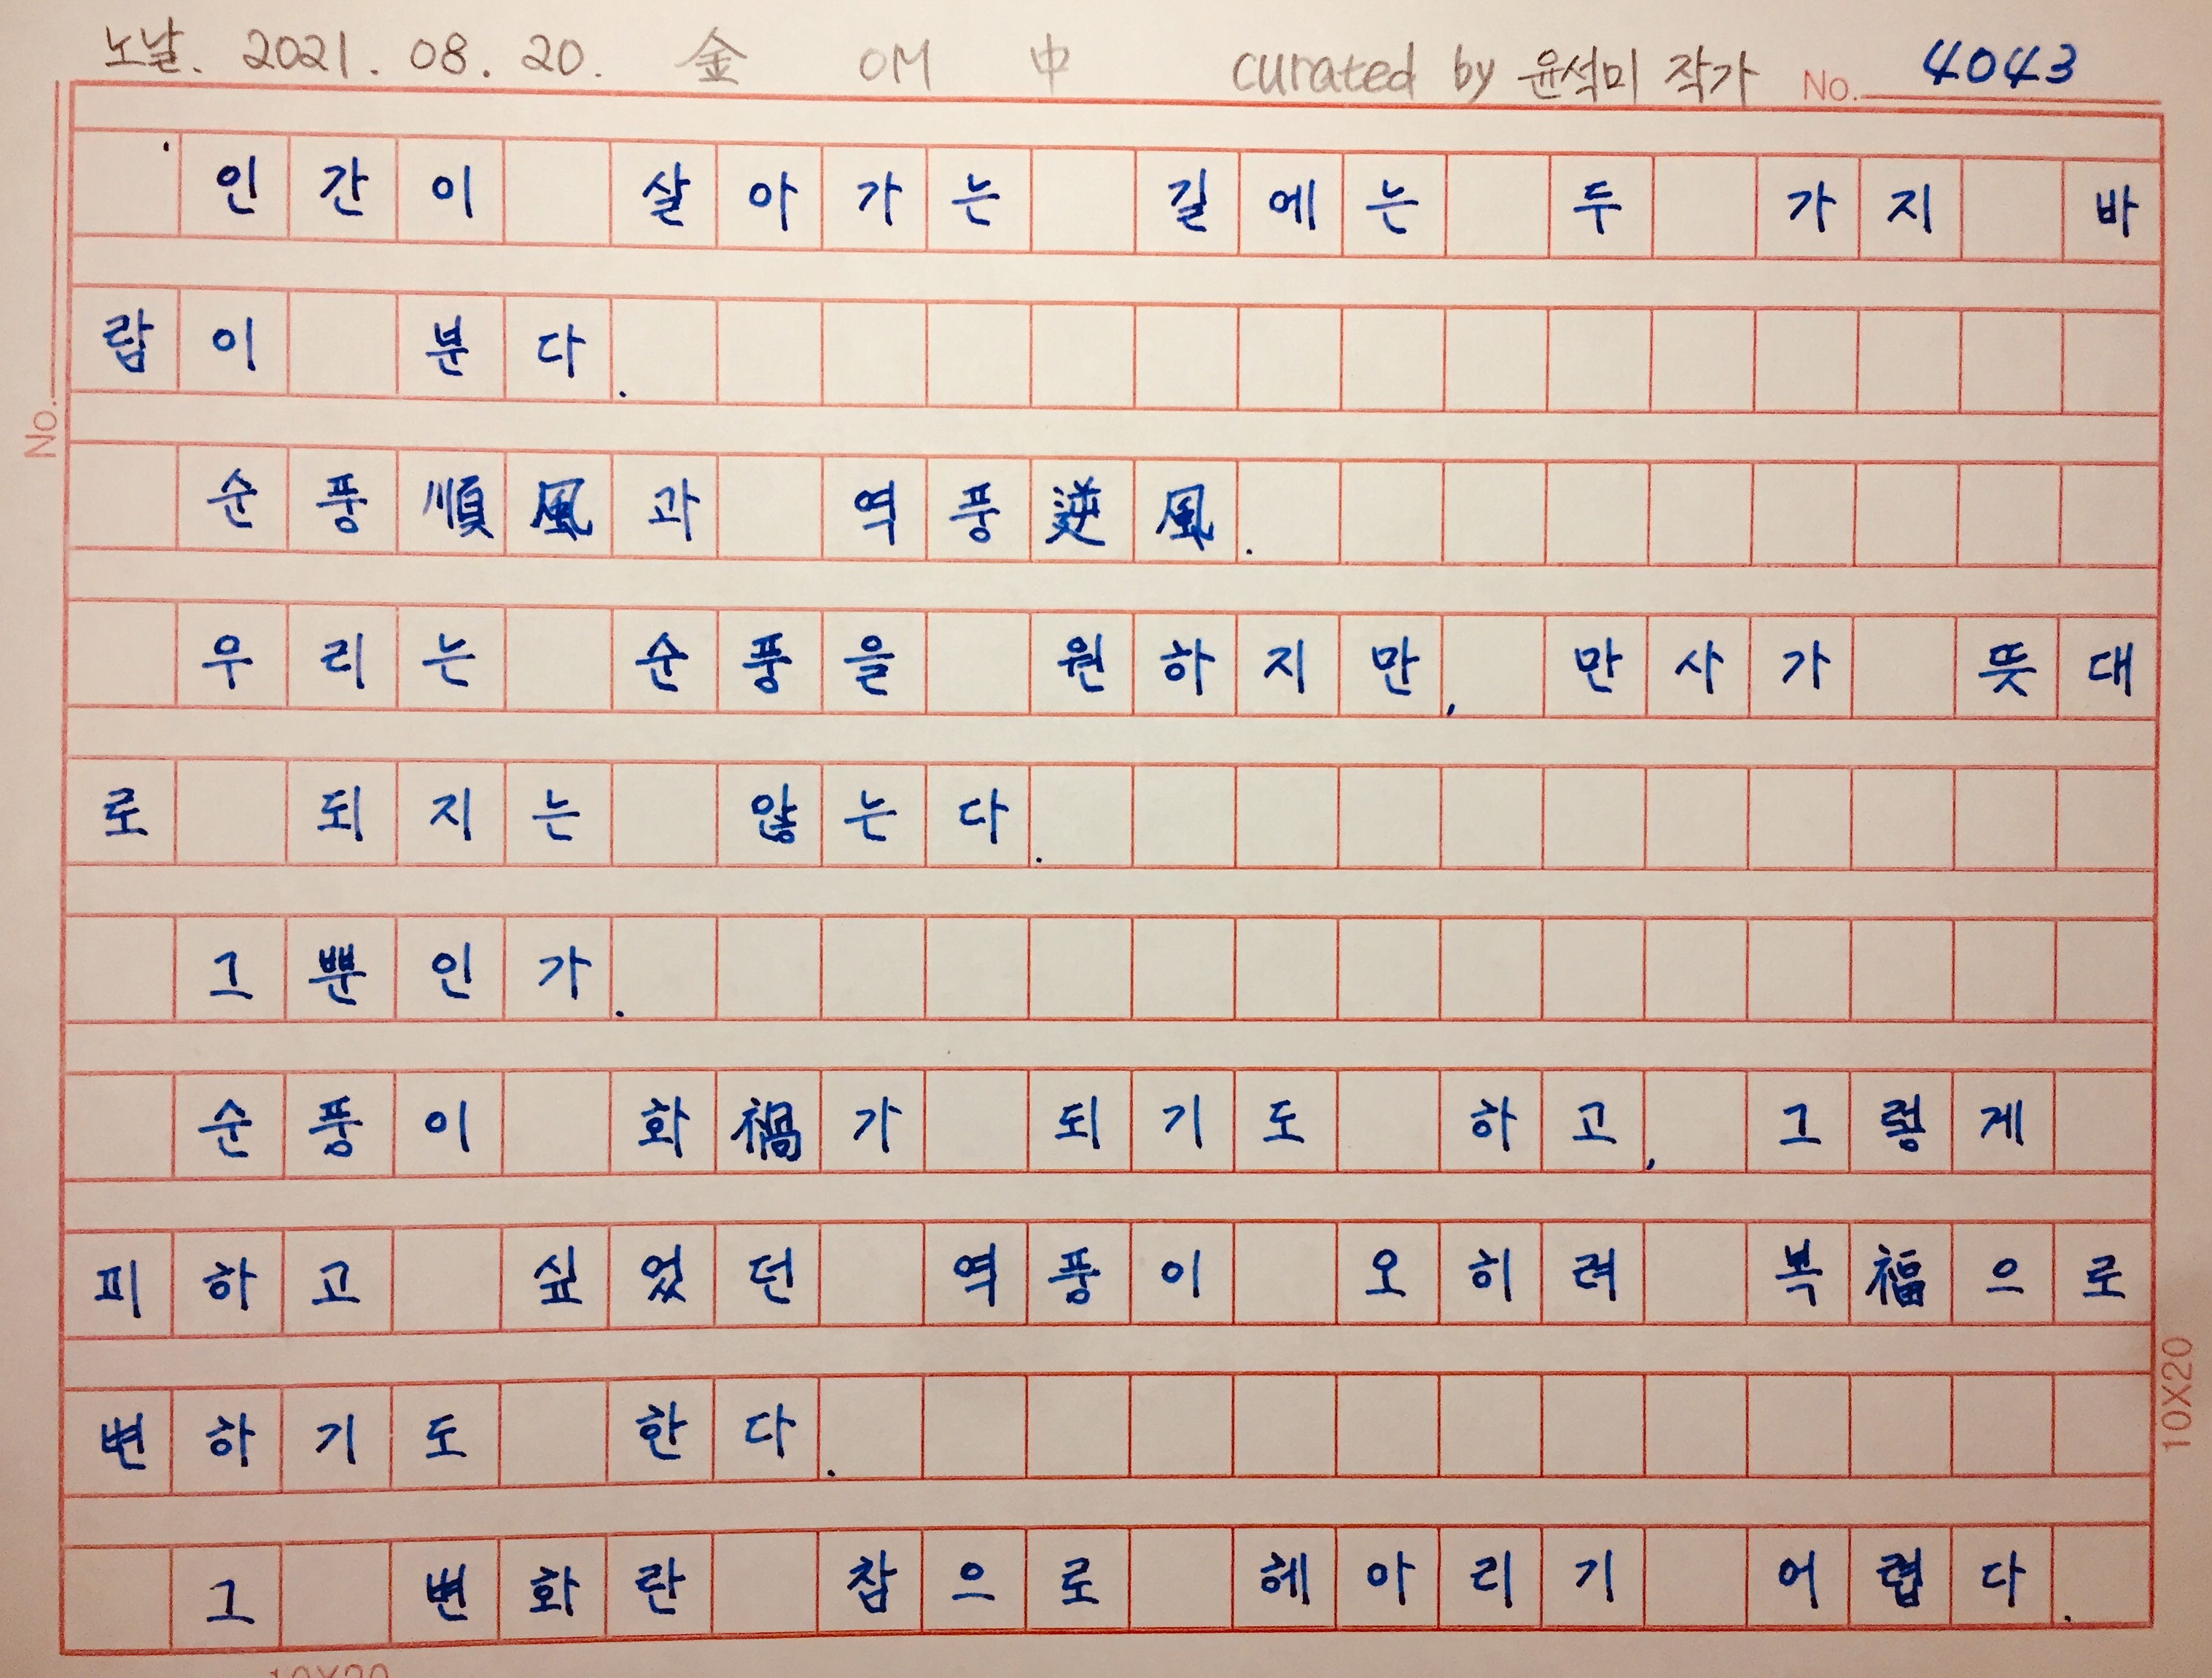 노날. 2021. 08. 20. 金 OM 中 curated by 윤석미 작가 No. 4043
인간이 살아가는 길에는 두 가지 바
람이 분다.
No.
순풍順風과 역풍逆風.
우리는 순풍을 원하지만, 만사가 뜻대
로 되지는 않는다.
그뿐인가.
순풍이 화禍가 되기도 하고, 그렇게
피하고 싶었던 역풍이 오히려 복福으로
변하기도 한다.
10X20
그 변화란 참으로 헤아리기 어렵다.
10X20